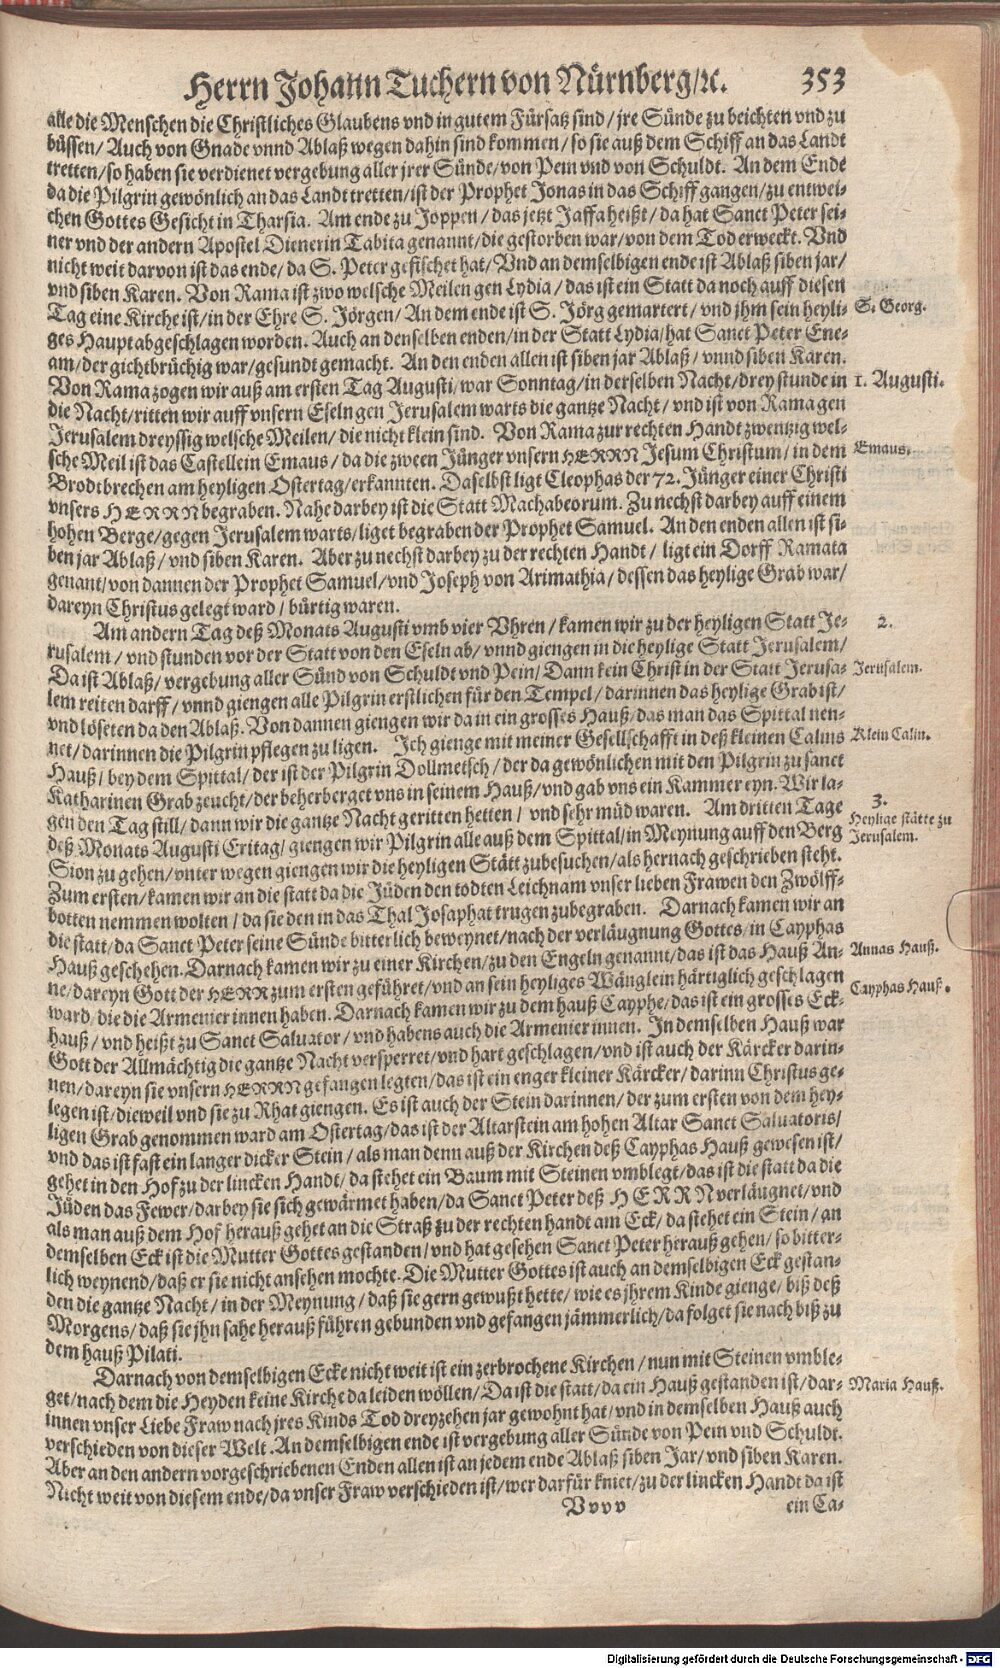 Herrn Johann Tuchern von Nürnberg/ꝛc. 353
alle die Menschen die Christliches Glaubens vnd in gutem Fürsatz sind / jre Sünde zu beichten vnd zu
büssen / Auch von Gnade vnnd Ablaß wegen dahin sind kommen / so sie auß dem Schiff an das Landt
tretten / so haben sie verdienet vergebung aller jrer Sünde / von Pein vnd von Schuldt. An dem Ende
da die Pilgrin gewönlich an das Landt tretten / ist der Prophet Jonas in das Schiff gangen / zu entwei-
chen Gottes Gesicht in Tharsia. Am ende zu Joppen / das jetzt Jaffa heißt / da hat Sanct Peter sei-
ner vnd der andern Apostel Dienerin Tabita genannt / die gestorben war / von dem Tod erweckt. Vnd
nicht weit darvon ist das ende / da S. Peter gefischet hat / Vnd an demselbigen ende ist Ablaß siben jar /
vnd siben Karen. Von Rama ist zwo welsche Meilen gen Lydia / das ist ein Statt da noch auff diesen
Tag eine Kirche ist / in der Ehre S. Jörgen / An dem ende ist S. Jörg gemartert / vnd jhm sein heyli-
S. Georg.
ges Haupt abgeschlagen worden. Auch an denselben enden / in der Statt Lydia / hat Sanct Peter Ene-
am / der gichtbrüchig war / gesundt gemacht. An den enden allen ist siben jar Ablaß / vnnd siben Karen.
Von Rama zogen wir auß am ersten Tag Augusti / war Sonntag / in derselben Nacht / drey stunde in
1. Augusti.
die Nacht / ritten wir auff vnsern Eseln gen Jerusalem warts die gantze Nacht / vnd ist von Rama gen
Jerusalem dreyssig welsche Meilen / die nicht klein sind. Von Rama zur rechten Handt zwentzig wel-
sche Meil ist das Castellein Emaus / da die zween Jünger vnsern HERRN Jesum Christum / in dem
Emaus.
Brodtbrechen am heyligen Ostertag / erkannten. Daselbst ligt Cleophas der 72. Jünger einer Christi
vnsers HERRN begraben. Nahe darbey ist die Statt Machabeorum. Zu nechst darbey auff einem
hohen Berge / gegen Jerusalem warts / liget begraben der Prophet Samuel. An den enden allen ist si-
ben jar Ablaß / vnd siben Karen. Aber zu nechst darbey zu der rechten Handt / ligt ein Dorff Ramata
genant / von dannen der Prophet Samuel / vnd Joseph von Arimathia / dessen das heylige Grab war /
dareyn Christus gelegt ward / bürtig waren.
Am andern Tag deß Monats Augusti vmb vier Vhren / kamen wir zu der heyligen Statt Je-
2.
rusalem / vnd stunden vor der Statt von den Eseln ab / vnnd giengen in die heylige Statt Jerusalem /
Da ist Ablaß / vergebung aller Sünd von Schuldt vnd Pein / Dann kein Christ in der Statt Jerusa-
Jerusalem.
lem reiten darff / vnnd giengen alle Pilgrin erstlichen für den Tempel / darinnen das heylige Grab ist /
vnd löseten da den Ablaß. Von dannen giengen wir da in ein grosses Hauß / das man das Spittal nen-
net / darinnen die Pilgrin pflegen zu ligen. Ich gienge mit meiner Gesellschafft in deß kleinen Calins
Klein Calin.
Hauß / bey dem Spittal / der ist der Pilgrin Dollmetsch / der da gewönlichen mit den Pilgrin zu sanct
Katharinen Grab zeucht / der beherberget vns in seinem Hauß / vnd gab vns ein Kammer eyn. Wir la-
gen den Tag still / dann wir die gantze Nacht geritten hetten / vnd sehr müd waren. Am dritten Tage
3.
Heylige stätte zu
Jerusalem.
deß Monats Augusti Eritag / giengen wir Pilgrin alle auß dem Spittal / in Meynung auff den Berg
Sion zu gehen / vnter wegen giengen wir die heyligen Stätt zubesuchen / als hernach geschrieben steht.
Zum ersten / kamen wir an die statt da die Jüden den todten Leichnam vnser lieben Frawen den Zwölff-
botten nemmen wolten / da sie den in das Thal Josaphat trugen zubegraben. Darnach kamen wir an
die statt / da Sanct Peter seine Sünde bitterlich beweynet / nach der verläugnung Gottes / in Cayphas
Hauß geschehen. Darnach kamen wir zu einer Kirchen / zu den Engeln genannt / das ist das Hauß An-
Annas Hauß.
ne / dareyn Gott der HERR zum ersten geführet / vnd an sein heyliges Wänglein härtiglich geschlagen
ward / die die Armenier innen haben. Darnach kamen wir zu dem hauß Cayphe / das ist ein grosses Eck-
Cayphas Hauß.
hauß / vnd heißt zu Sanct Saluator / vnd habens auch die Armenier innen. In demselben Hauß war
Gott der Allmächtig die gantze Nacht versperret / vnd hart geschlagen / vnd ist auch der Kärcker darin-
nen / dareyn sie vnsern HERRN gefangen legten / das ist ein enger kleiner Kärcker / darinn Christus ge-
legen ist / dieweil vnd sie zu Rhat giengen. Es ist auch der Stein darinnen / der zum ersten von dem hey-
ligen Grab genommen ward am Ostertag / das ist der Altarstein am hohen Altar Sanct Saluatoris /
vnd das ist fast ein langer dicker Stein / als man denn auß der Kirchen deß Cayphas Hauß gewesen ist /
gehet in den Hof zu der lincken Handt / da stehet ein Baum mit Steinen vmblegt / das ist die statt da die
Jüden das Fewer / darbey sie sich gewärmet haben / da Sanct Peter deß HERRN verläugnet / vnd
als man auß dem Hof herauß gehet an die Straß zu der rechten handt am Eck / da stehet ein Stein / an
demselben Eck ist die Mutter Gottes gestanden / vnd hat gesehen Sanct Peter herauß gehen / so bitter-
lich weynend / daß er sie nicht ansehen mochte. Die Mutter Gottes ist auch an demselbigen Eck gestan-
den die gantze Nacht / in der Meynung / daß sie gern gewußt hette / wie es jhrem Kinde gienge / biß deß
Morgens / daß sie jhn sahe herauß führen gebunden vnd gefangen jämmerlich / da folget sie nach biß zu
dem hauß Pilati.
Darnach von demselbigen Ecke nicht weit ist ein zerbrochene Kirchen / nun mit Steinen vmble-
get / nach dem die Heyden keine Kirche da leiden wöllen / Da ist die statt / da ein Hauß gestanden ist / dar-
Maria Hauß.
innen vnser Liebe Fraw nach jres Kinds Tod dreyzehen jar gewohnt hat / vnd in demselben Hauß auch
verschieden von dieser Welt. An demselbigen ende ist vergebung aller Sünde von Pein vnd Schuldt.
Aber an den andern vorgeschriebenen Enden allen ist an jedem ende Ablaß siben Jar / vnd siben Karen.
Nicht weit von diesem ende / da vnser Fraw verschieden ist / wer darfür kniet / zu der lincken Handt da ist
Vvvv ein Ca-
Digitalisierung gefördert durch die Deutsche Forschungsgemeinschaft - DFG